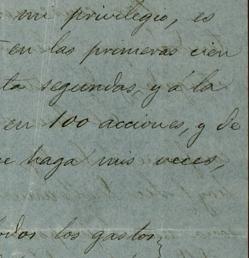 mi privilegio, es
en las primeras cien
ta segundas, y á la
en 100 acciones, y de
e haga mis veces,
odos los gastos